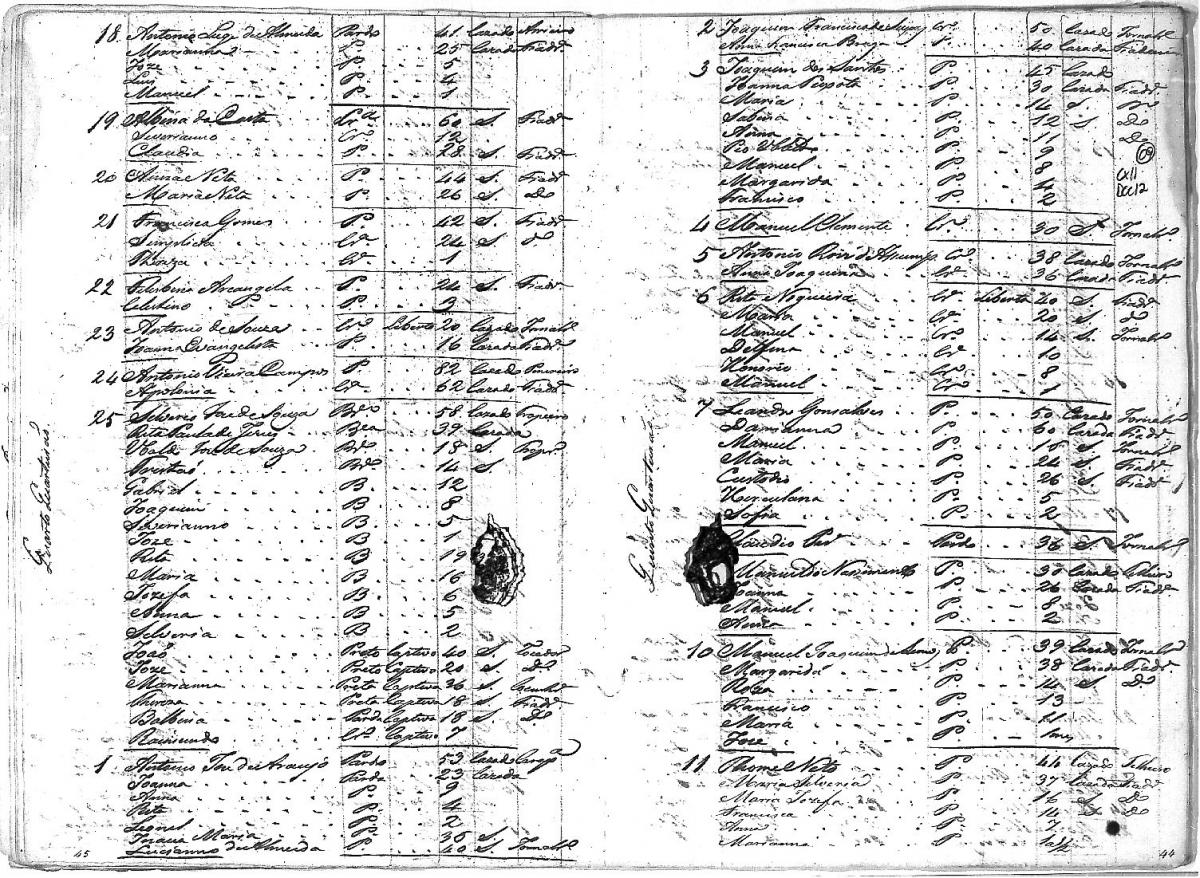 18 Antonio Luiz de Almeida Pardo 41 Cazado Arrieiro
Marianna P. 25 Cazada Fiadr.
Joze P. 5
Luis P. 4
Manuel P. 1
19 Albina da Costa Cr.a 60 S. Fiadr.
Severianno Cr.o 12
Claudia P. 28 S. Fiadr.
20 Anna Neta P. 44 S. Fiadr.
Maria Neta P. 26 S. Do
21 Francisca Gomes P. 42 S. Fiadr.
Simplicia Cr.a 24 S. D.o
Thereza Cr.a 1
22 Arcangela P. 24 S. Fiadr.
Celestino P. P. 3
23 Antonio de Souza Cr.o Liberto 20 Cazado Jornal.
Joanna Evangelista P. 16 Cazada Fiadr.
24 Antonio Vieira Campos P. 82 Cazado
Apolonia Cr.a 62 Cazada Fiadr.
25 Silverio Joze de Souza B.co 58 Cazado Tropeiro
Rita Paula de B.ca 39 Cazada
Joze de Souza B.co 18 S. Tropr.
B.co 14 S.
Gabriel B 12
Joaquim B 8
Severianno B 5
Joze B 1
Rita B 19
Maria B 16
Jozefa B 6
Anna B 5
Silveria B 2
João Preto Captivo 40 S. Tocador
Joze Preto Captivo 20 S. D.o
Marianna Preta Captiva 36 S.
Thereza Preta Captiva 18 S. Fiadr.
Balbina Parda Captiva 18 S. D.o
Raimundo Cr.o Captivo 7
Quarto Quarteirão
1 Antonio Joze de Araujo Pardo 53 Cazado
Joanna Parda 23 Cazada
Anna P. 9
Rita P. 4
Leonel P. 2
Maria P. 36 S.
Lucianno de Almeida P. 40 S. Jornal.
45
2 Joaquim Francisco de Cr.o 50 Cazado Jornal.
Anna Francisca Braga P. 40 Cazada
3 Joaquim dos Santos P. 45 Cazado
Joanna Peixota P. 30 Cazada Fiadr.
Maria P. 14 S. D.o
Sabina P. 12 S. D.o
Anna P. 11 D.o
Pio P. 9
Manuel P. 8
Margarida P. 4
Francisco P. 2
09
CX11
DOC12
4 Manuel Clemente Cr.o 30 S. Jornal.
5 Antonio Roiz d' Cr.o 38 Cazado Jornal.
Anna Joaquina Cr.a 36 Cazada Fiadr.
6 Rita Nogueira Cr.a Liberta 40 S. Fiadr.
Maria Cr.a 20 S. D.o
Manuel Cr.o 14 S. Jornal.
Delfina Cr.a 10
Honorio Cr.o 8
Manuel Cr.o 1
7 Leandro Gonsalves P. 50 Cazado Jornal.
Damianna P. 60 Cazada Fiadr.
Manuel P. 16 S. Jornal.
Maria P. 24 S. Fiadr.
Custodia P. 26 S. Fiadr.
Herculana P. 5
Sofia P. 2
Claudio Pardo 36 S. Jornal.
Manuel do Nascimento P. 37 Cazado Selleiro
Joanna P. 26 Cazada Fiadr.
Manuel P. 8
Anna P. 2
10 Manuel Joaquim de P. 39 Cazado Jornal.
Margarida P. 38 Cazada Fiadr.
Roza P. 14 S. D.o
Francisco P. 13
Maria P. 11
Joze P.
Quinto Quarteirão
11 Thome Neto P. 44 Cazado Selleiro
Maria Silveria P. 37 Cazada Fiadr.
Maria Jozefa P. 16 S. D.o
Francisca P. 14 S. D.o
Anna P. 1
Marianna P.
44